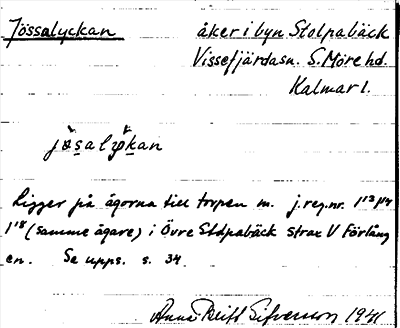 Jössalyckan åker i byn Stolpabäck
Vissefjärdasn. S. Möre hd.
Kalmar l.
jö̀saly̆kan
Ligger på ägorna till torpen m. j.reg.nr. 1¹³ 1¹⁴
1¹⁸ (samme ägare) i Övre Stolpabäck strax V Förläng
en. Se upps. s. 34.
Anna Britt Sifversson 1941